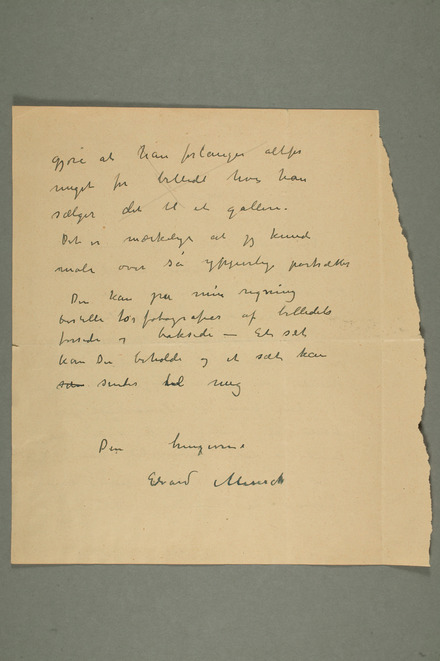 gjøre at han forlanger altfor
meget for billedet hvis han
sælger det til et galleri.
Det er mærkeligt at jeg kunde
male over så ypperlige portrætter
Du kan på min regning
bestille to fotografier af billedets
forside og bakside – Et sæt
kan Du beholde og et sæt kan
sendes til meg
Din hengivne
Edvard Munch